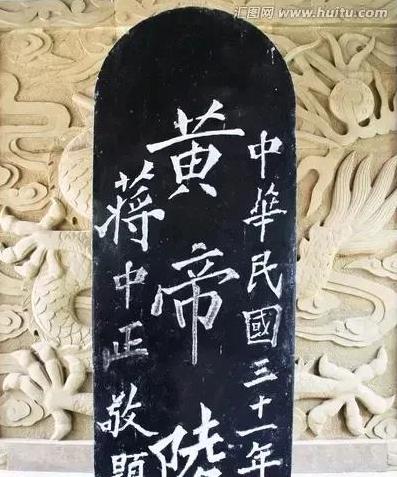 中華民國三十一年
黄帝陵
蔣中正敬題
汇图网 www.huitu.com